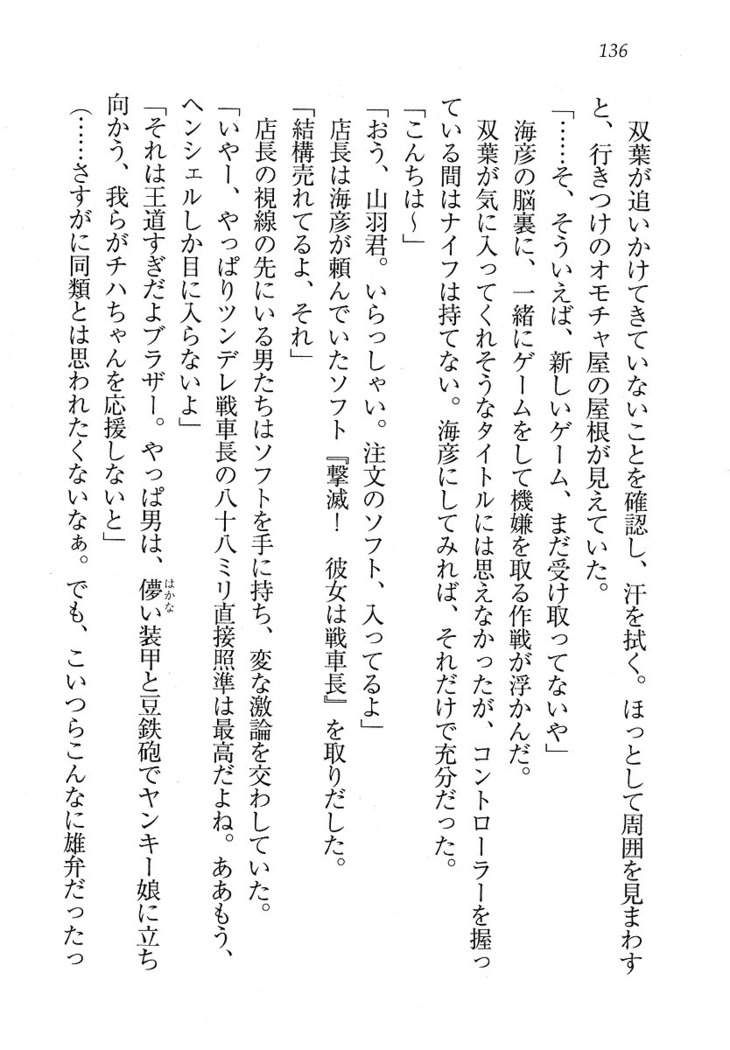 136
双葉が追いかけてきていないことを確認し、汗を拭く。ほっとして周囲を見まわす
と、行きつけのオモチャ屋の屋根が見えていた。
「……そ、そういえば、新しいゲーム、まだ受け取ってないや」
海彦の脳裏に、一緒にゲームをして機嫌を取る作戦が浮かんだ。
双葉が気に入ってくれそうなタイトルには思えなかったが、コントローラーを握っ
ている間はナイフは持てない。海彦にしてみれば、それだけで充分だった。
「こんちは～」
「おう、山羽君。いらっしゃい。注文のソフト、入ってるよ」
店長は海彦が頼んでいたソフト『撃滅！　彼女は戦車長』を取りだした。
「結構売れてるよ、それ」
店長の視線の先にいる男たちはソフトを手に持ち、変な激論を交わしていた。
「いやー、やっぱりツンデレ戦車長の八十八ミリ直接照準は最高だよね。ああもう、
ヘンシェルしか目に入らないよ」
「それは王道すぎだよブラザー。やっぱ男は、儚い装甲と豆鉄砲でヤンキー娘に立ち
はかな
向かう、我らがチハちゃんを応援しないと」
（……さすがに同類とは思われたくないなぁ。でも、こいつらこんなに雄弁だったっ